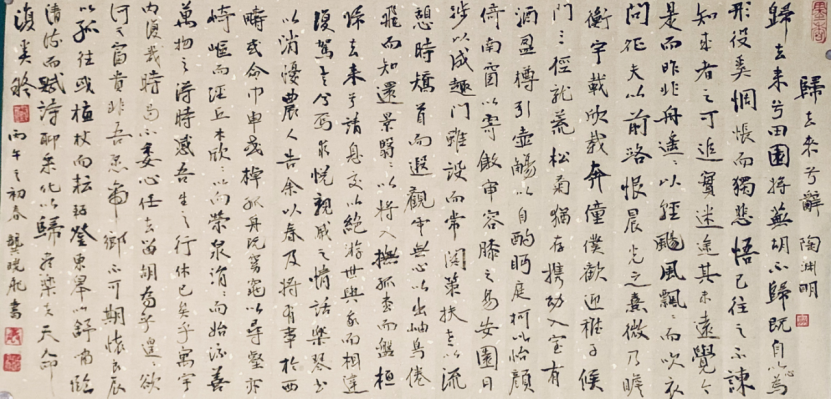 歸去来兮辭 陶淵明
歸去来兮田園將蕪胡不歸既自以心為
形役奚惆悵而獨悲悟已往之不諫
知来者之可追實迷途其未遠覺今
是而昨非舟遙〻以輕颺風飄〻而吹衣
問征夫以前路恨晨光之熹微乃瞻
衡宇載欣載奔僮僕歡迎稚子候
門三徑就荒松菊猶存携幼入室有
酒盈樽引壺觴以自酌眄庭柯以怡顏
倚南窗以寄傲審容膝之易安園日
涉以成趣門雖設而常関策扶老以流
憩時矯首而遐觀雲無心以出岫鳥倦
飛而知還景翳〻以將入撫孤松而盤桓
歸去来兮請息交以絕游世與我而相違
復駕言兮焉求悅親戚之情話樂琴書
以消憂農人告余以春及將有事於西
疇或命巾車或棹孤舟既窈窕以尋壑亦
崎嶇而經丘木欣〻以向榮泉涓〻而始流善
萬物之得時感吾生之行休已矣乎寓宇
内復幾時曷不委心任去留胡為乎遑〻欲
何之富貴非吾愿帝鄉不可期懷良辰
以孤往或植杖而耘耔登東皋以舒嘯臨
清流而賦詩聊乘化以歸盡樂夫天命
復奚疑 丙午之初春 龔曉 書